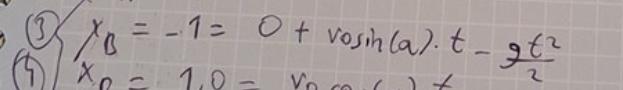 ③ x_B = -1 = 0 + v₀sin(a). t - gt²/2
④ x_D = 1,0 =